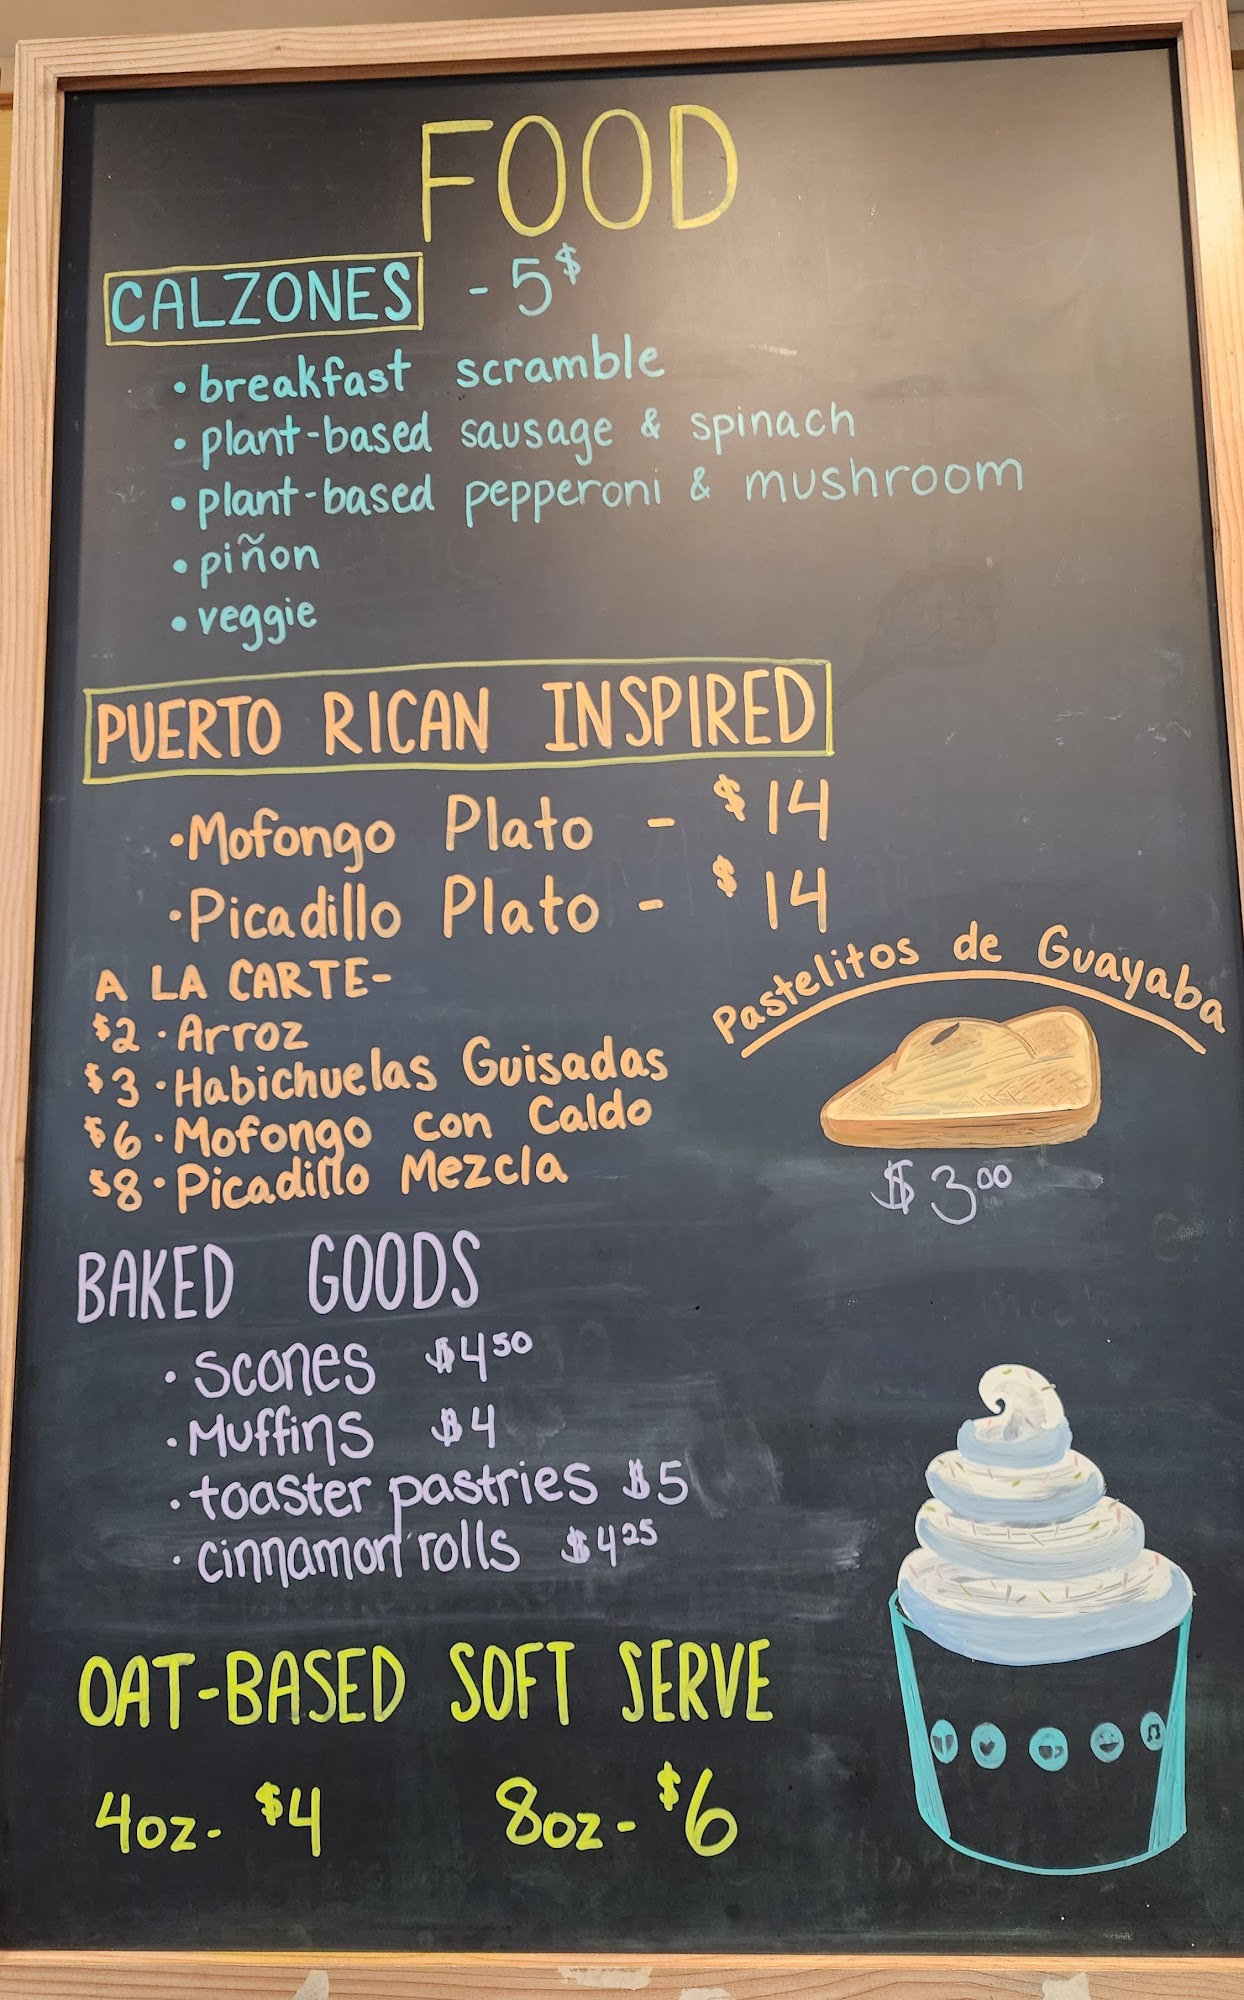 FOOD
CALZONES - 5$
• breakfast scramble
• plant-based sausage & spinach
• plant-based pepperoni & mushroom
• piñon
• veggie
PUERTO RICAN INSPIRED
• Mofongo Plato - $14
• Picadillo Plato - $14
A LA CARTE-
$2 • Arroz
$3 • Habichuelas Guisadas
$6 • Mofongo con Caldo
$8 • Picadillo Mezcla
Pastelitos de Guayaba
$3.00
BAKED GOODS
• Scones $4 50
• Muffins $4
• toaster pastries $5
• cinnamon rolls $4 25
OAT-BASED SOFT SERVE
4oz- $4 8oz- $6